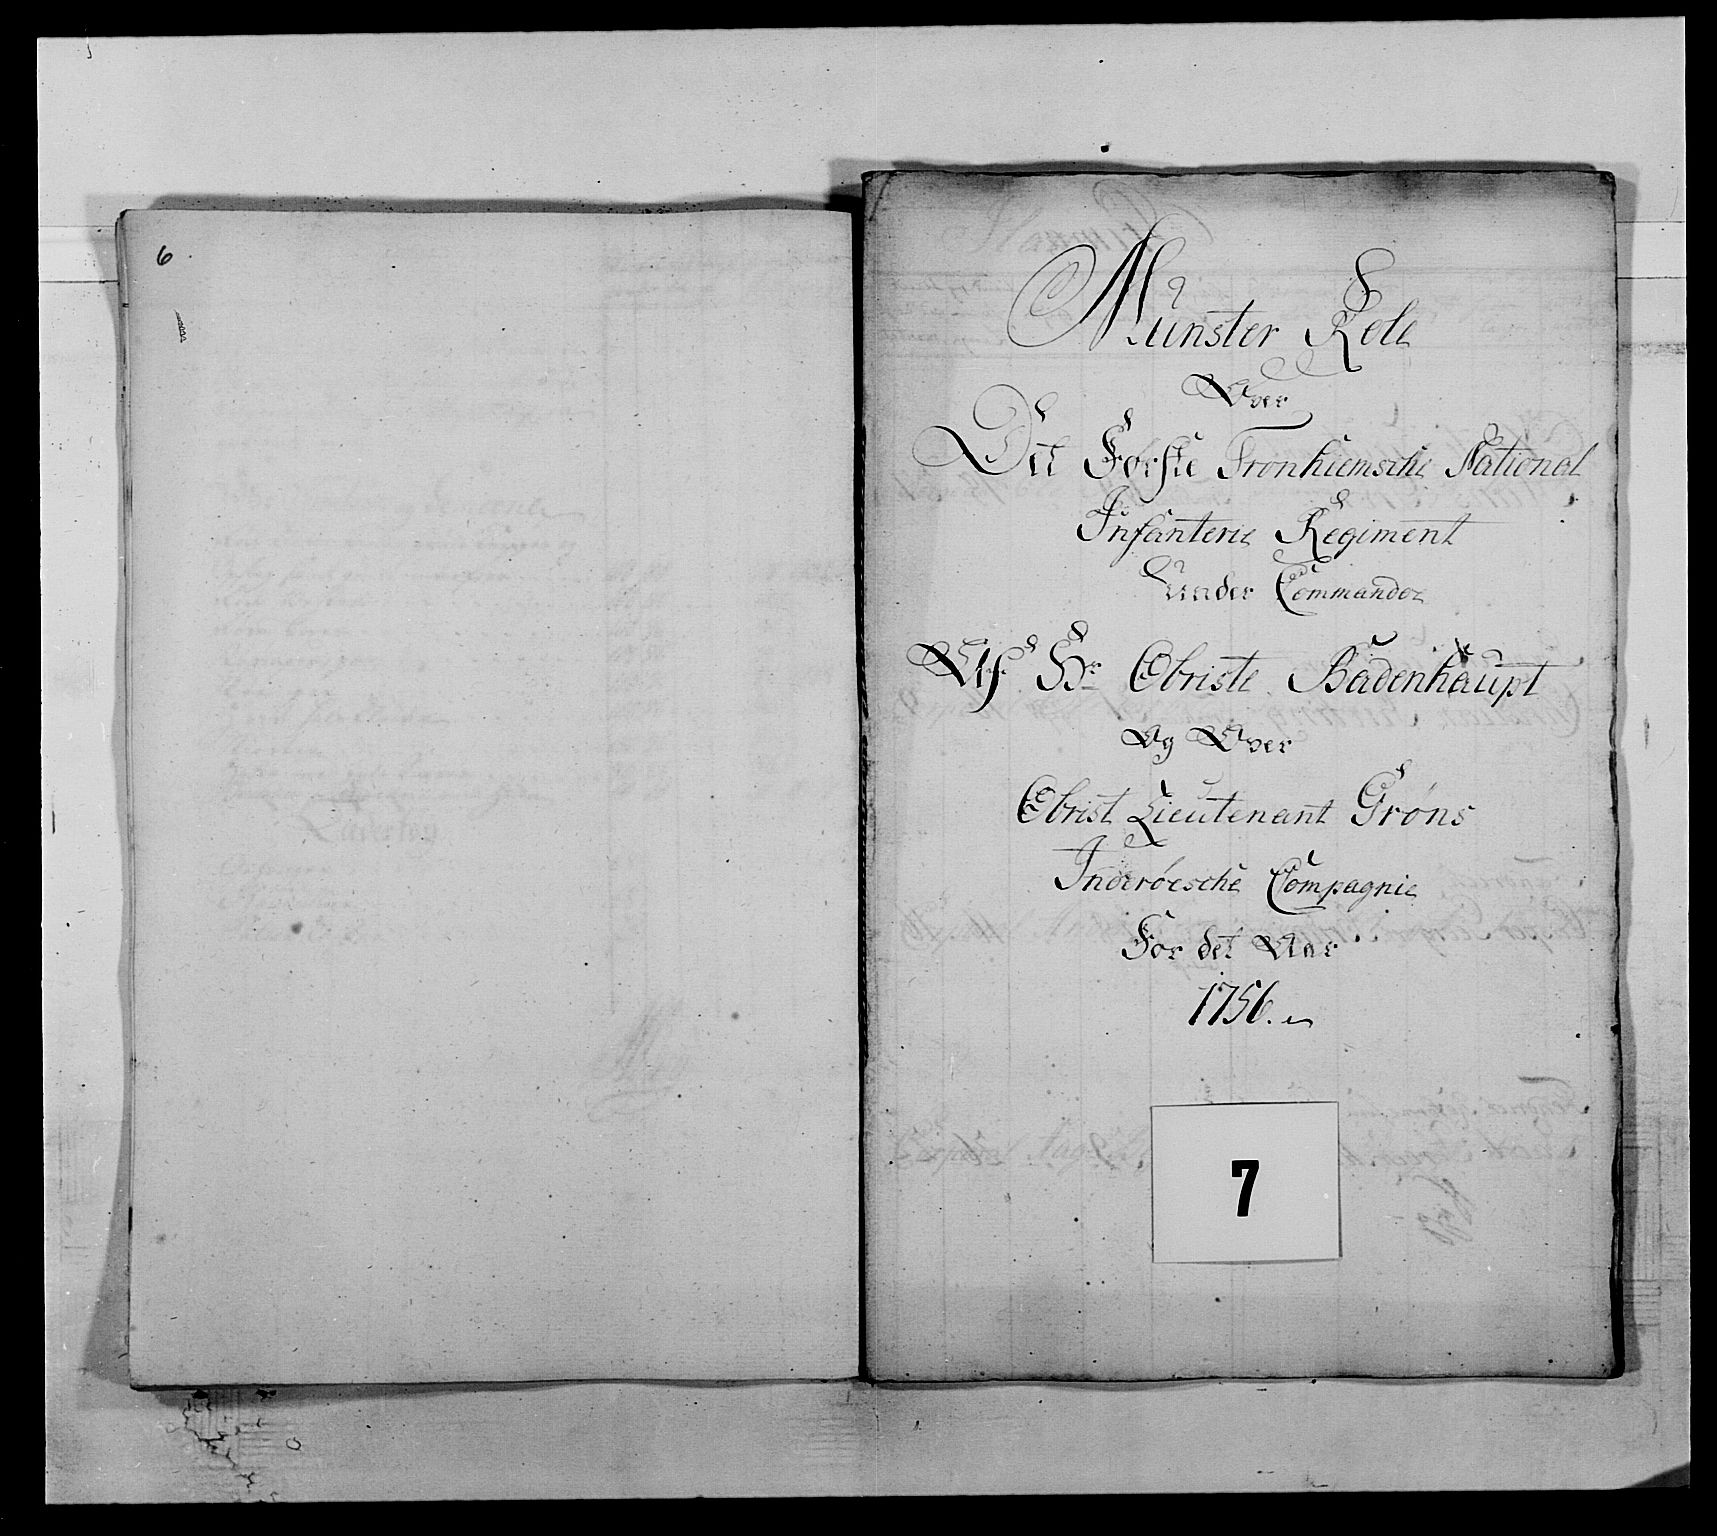 6.
Munster Role
Over
Det Første Tronhiemsche National
Infanterie Regiment
Under Commandoe
Af Hr Obriste Badenhaupt
Og Over
Obrist Lieutenant Grøns
Inderöesche Compagnie
For det Aar
1756.
7